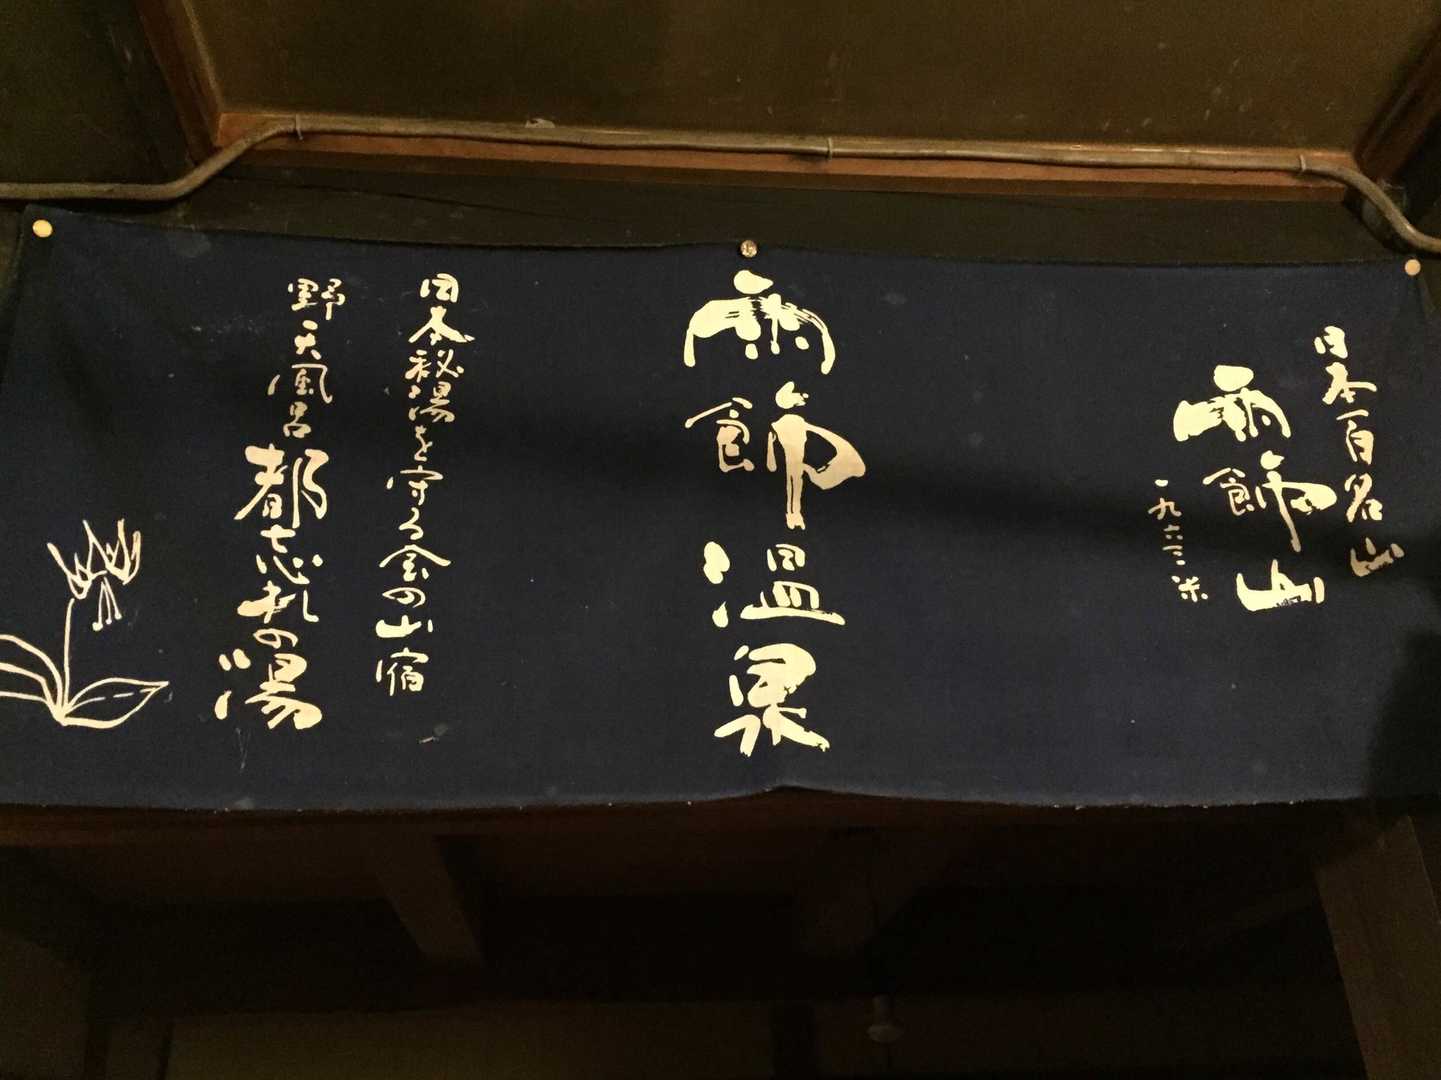 日本百名山
雨飾山
一九六三米
雨飾温泉
日本秘湯を守る会の山宿
野天風呂
都忘れの湯